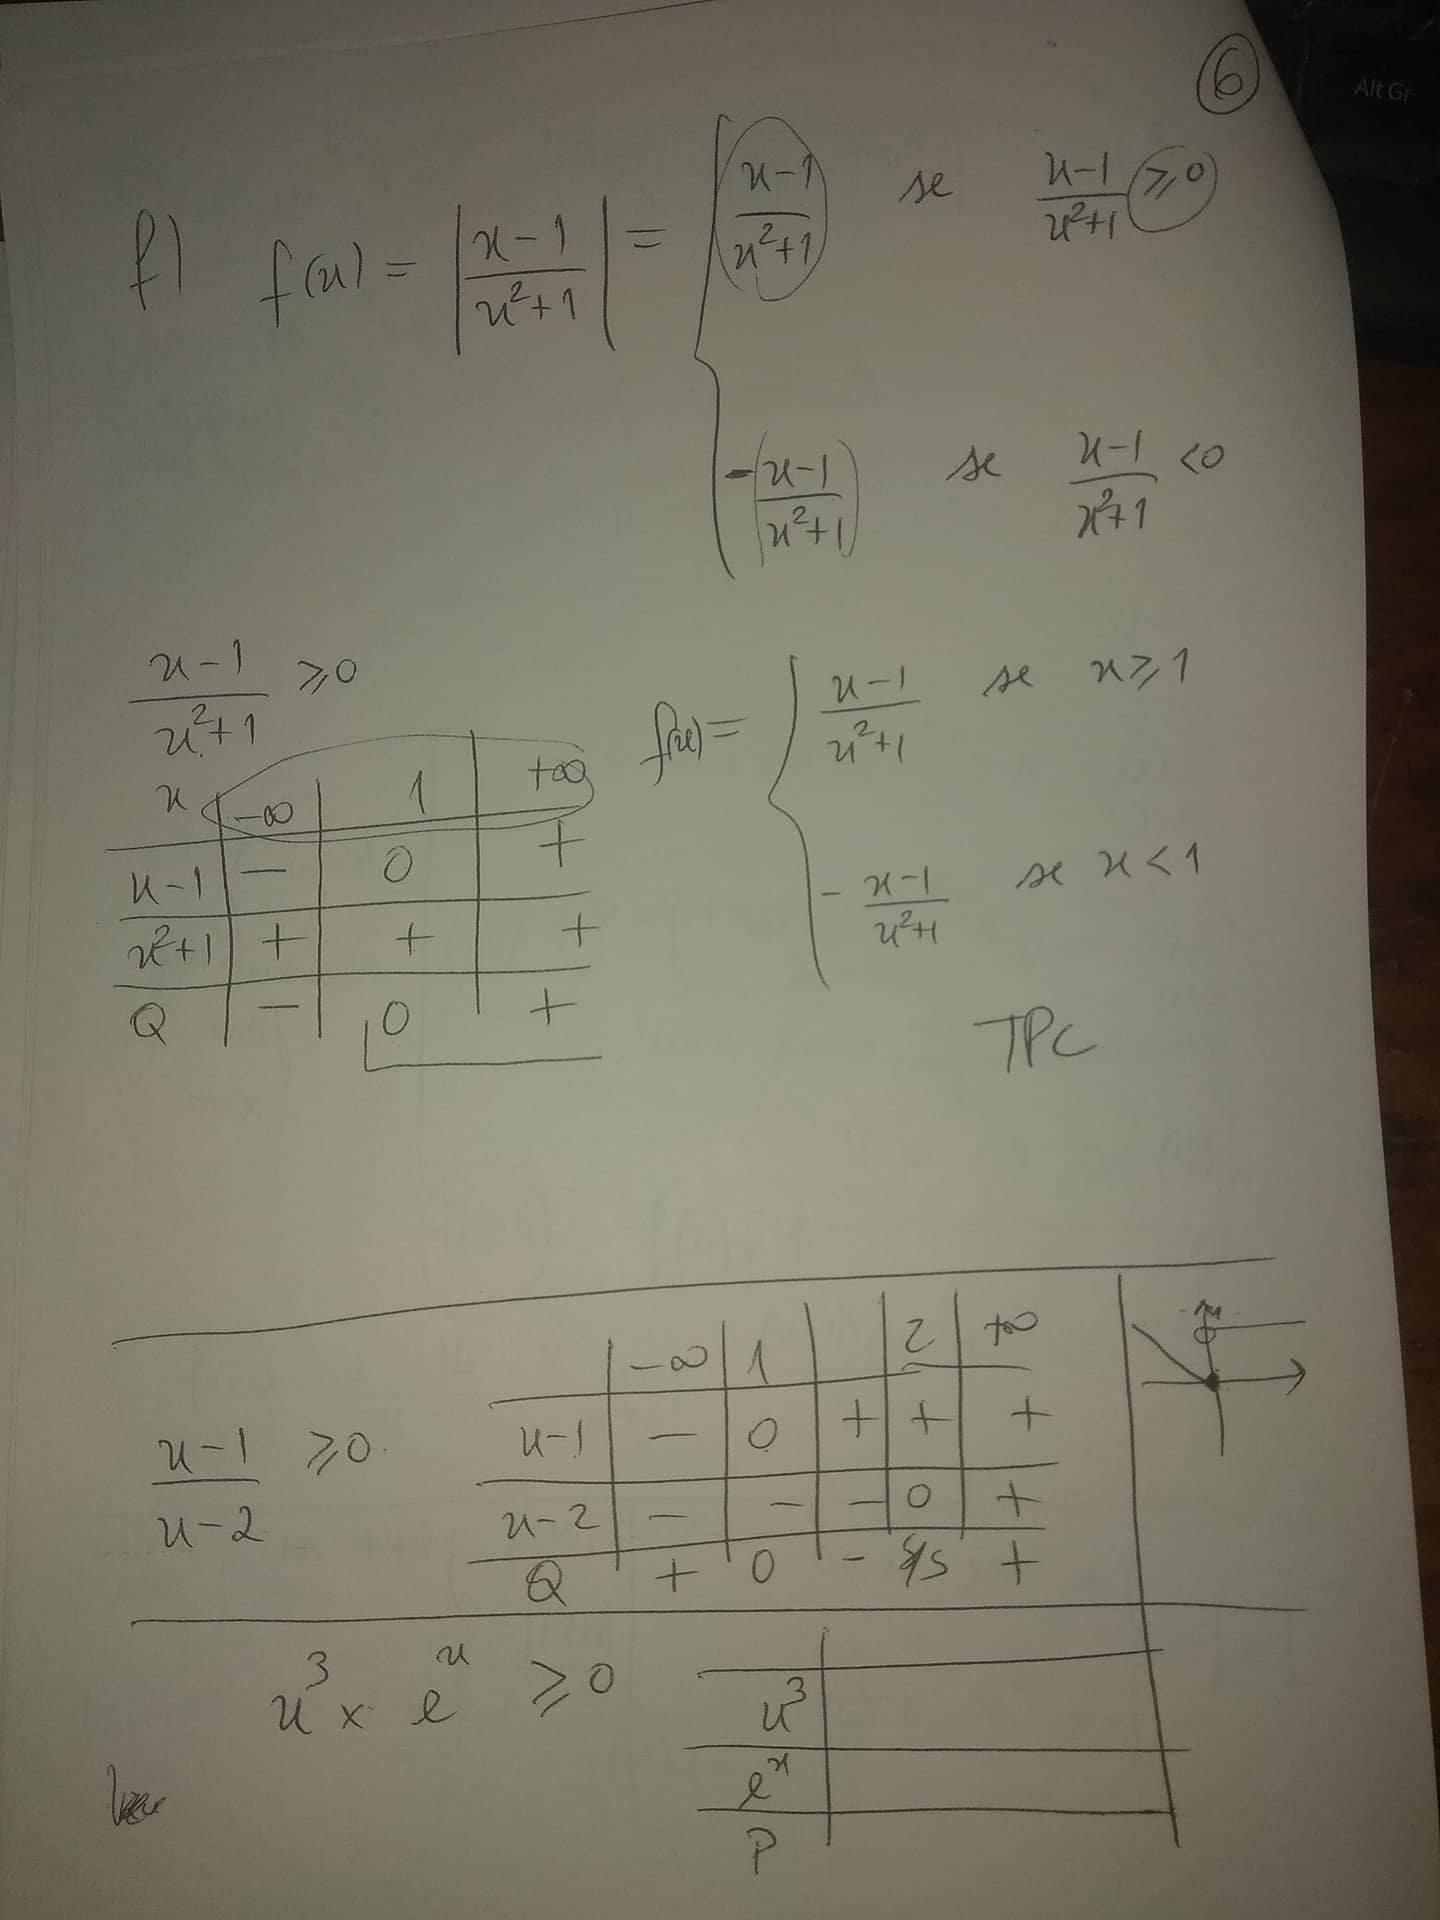 6
Alt Gr
f) f(x) = |x-1 / x²+1| = { x-1 / x²+1 se x-1 / x²+1 ≥ 0
-(x-1 / x²+1) se x-1 / x²+1 < 0
x-1 / x²+1 ≥ 0
f(x) = { x-1 / x²+1 se x ≥ 1
- x-1 / x²+1 se x < 1
x | -∞ | 1 | +∞
x-1 | - | 0 | +
x²+1 | + | + | +
Q | - | 0 | +
TPC
x-1 / x-2 ≥ 0
-∞ | 1 | | 2 | +∞
x-1 | - | 0 | + | + | +
x-2 | - | - | - | 0 | +
Q | + | 0 | - | S/S | +
x³ × eˣ ≥ 0
x³
eˣ
P